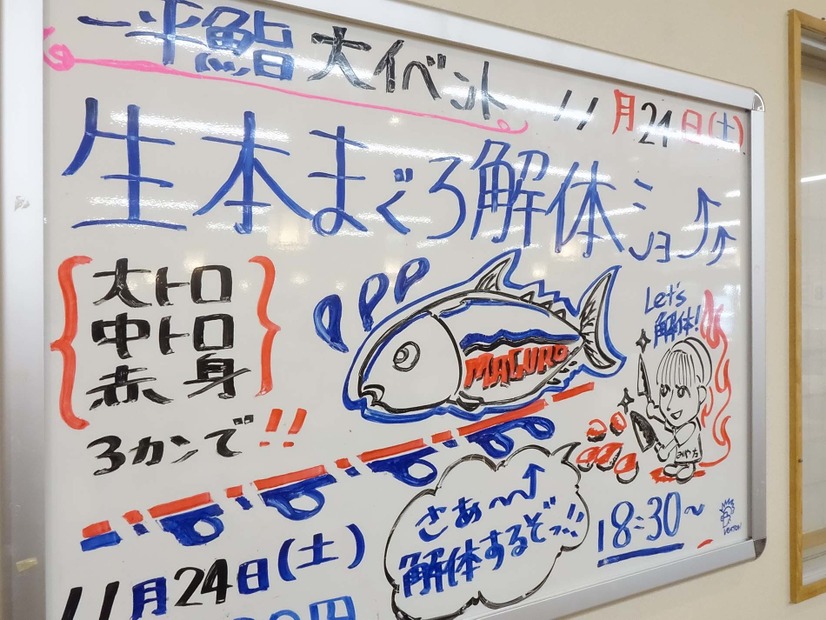 一平鮨 大イベント 11月24日(土)
生本まぐろ解体ショ↑↑
大トロ
中トロ
赤身
3カンで!!
MAGURO
Let's
解体!
さあ〜〜↑
解体するぞっ!!
18:30〜
11月24日(土)
00円